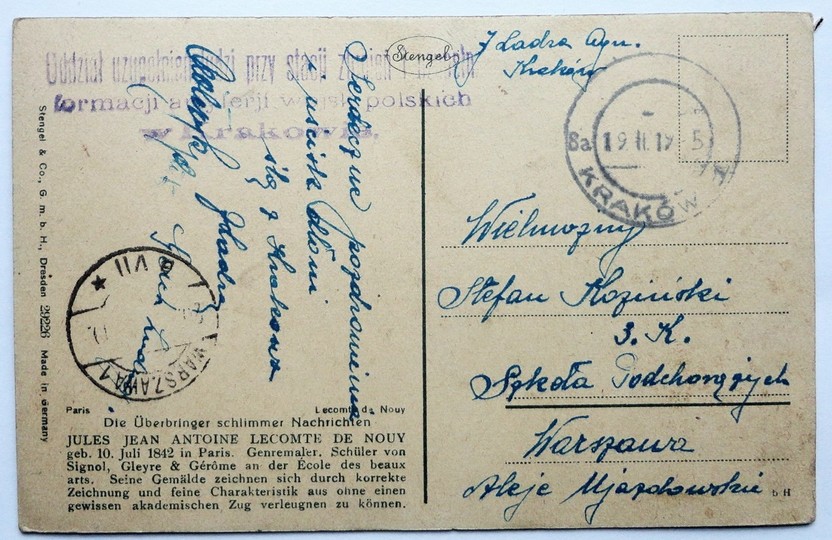 Stengel
Oddział uzupełnień przy stacji
formacji artylerji wojsk polskich
w Krakowie.
Serdeczne pozdrowienia
i uścisk dłoni
z Krakowa
WARSZAWA 1
VII
Ładra Ag.
Kraków
8a 19.II.19-5
KRAKÓW
Wielmożny
Stefan Koziński
3. K.
Szkoła Podchorążych
Warszawa
Aleje Ujazdowskie
b H
Stengel & Co., G. m. b. H., Dresden 29226 Made in Germany
Paris Lecomte de Nouy
Die Überbringer schlimmer Nachrichten
JULES JEAN ANTOINE LECOMTE DE NOUY
geb. 10. Juli 1842 in Paris. Genremaler. Schüler von
Signol, Gleyre & Gérôme an der École des beaux
arts. Seine Gemälde zeichnen sich durch korrekte
Zeichnung und feine Charakteristik aus ohne einen
gewissen akademischen Zug verleugnen zu können.